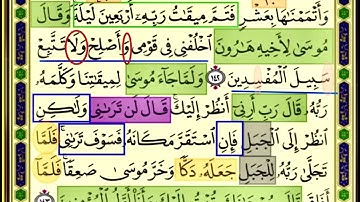 وَأَتْمَمْنَٰهَا بِعَشْرٍ فَتَمَّ مِيقَٰتُ رَبِّهِۦٓ أَرْبَعِينَ لَيْلَةً ۚ وَقَالَ
مُوسَىٰ لِأَخِيهِ هَٰرُونَ ٱخْلُفْنِى فِى قَوْمِى وَأَصْلِحْ وَلَا تَتَّبِعْ
سَبِيلَ ٱلْمُفْسِدِينَ ١٤٢ وَلَمَّا جَآءَ مُوسَىٰ لِمِيقَٰتِنَا وَكَلَّمَهُۥ
رَبُّهُۥ قَالَ رَبِّ أَرِنِىٓ أَنظُرْ إِلَيْكَ ۚ قَالَ لَن تَرَىٰنِى وَلَٰكِنِ
ٱنظُرْ إِلَى ٱلْجَبَلِ فَإِنِ ٱسْتَقَرَّ مَكَانَهُۥ فَسَوْفَ تَرَىٰنِى ۚ فَلَمَّا
تَجَلَّىٰ رَبُّهُۥ لِلْجَبَلِ جَعَلَهُۥ دَكًّا وَخَرَّ مُوسَىٰ صَعِقًا ۚ فَلَمَّآ